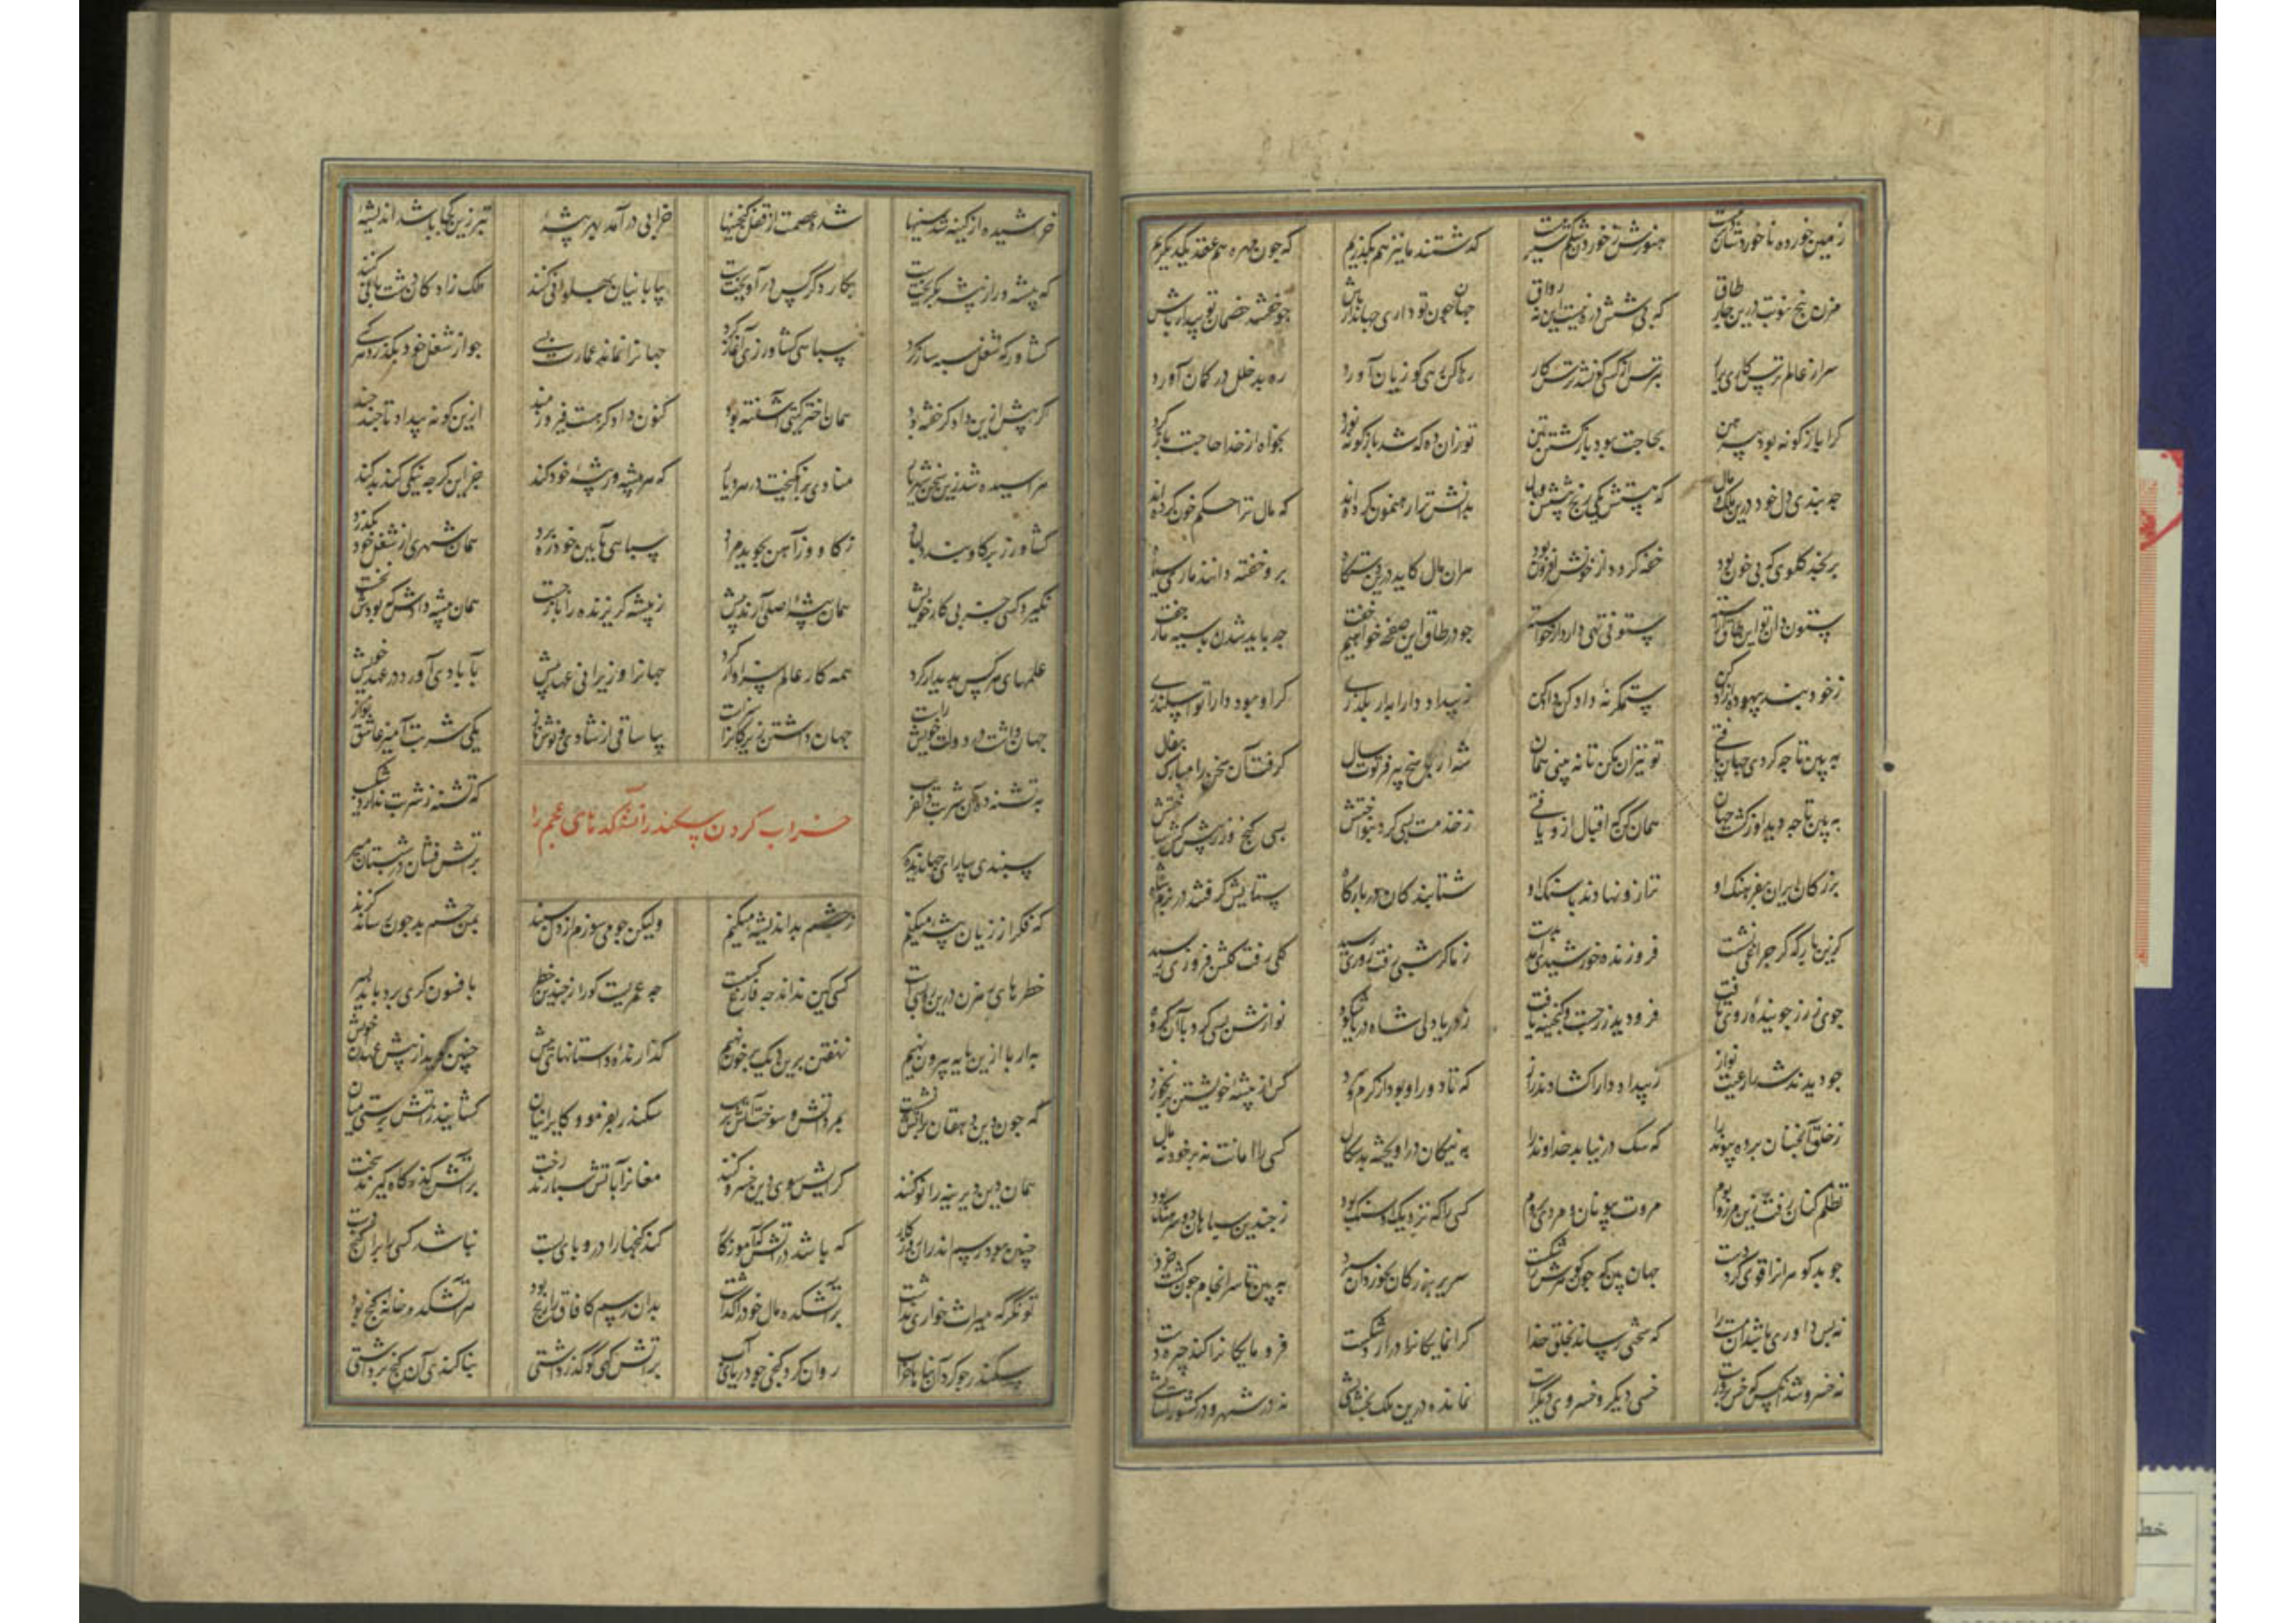 زمین خورده تا خوردشان دیر نیست هنوزش ز خوردن شکم سیر نیست گذشتند ما نیز هم بگذریم که چون مهره هم عقد یکدیگریم
مزن پنج نوبت درین چار طاق که بی شش دره نیست این نه رواق جهان چون تو داری جهاندار باش چو خفتند خصمان تو بیدار باش
سر از عالم ترسکاری برآر بترس از کسی کو نشد ترسکار رها کن رهی کو زیان آورد ره بد خلل در کمان آورد
بود پیرهن بحاجت بود بازگشتن بتن تو زان ده که شد بازگونه نورد بخواه از خدا حاجت بازگرد
چه بندی دل خود درین ملک و مال که هستش یکی رنج و بیشش وبال بدانش ترا رهنمون کرده‌اند که مال ترا حکم خون کرده‌اند
نرنجد گلوی که بی خون بود خفه گردد از خونش افزون بود بران مال کاید درین دستگاه برو خفته دانند ماری سیاه
ستون دان تو این طاق ستونی تهی دار از خواسته چو در طاق این صفه خواهیم خفت چه باید شدن با سیه مار جفت
ز خود بند بیهوده آزاد کن ستمگر نه داد کن داد کن ز بیداد دارا گر او بود دارا تو اسکندری
به بین تا چه کردی جهان یافتی تو نیز آن مکن تا نه بینی همان شه از پاسخ پیر فرتوت سال گرفت آن سخن را مبارک بفال
به بین تا چه دید او ز گشت جهان همان کن که اقبال ازو یافتی ز خدمت بسی کرد بنواختش بسی گنج و زر پیشکش ساختش
بزرگان ایران بفرهنگ او ترازو نهادند با سنگ او شتابندگان در بارگاه ستایش گرفتند در بزم شاه
کزین بارگه گر چراغی نشست فروزنده خورشیدی آمد بدست ز ما گر شبی رفت روزی رسید گلی رفت گلشن فروزی رسید
جوی زر ز جوینده روی تافت فرو دید زر جست و گنجینه یافت ز دریا دلی شاه دریا شکوه نوازش بسی کرد با آن گروه
چو دیدند شه را رعیت نواز ز بیداد دارا گشادند راز که تا دور او بود کس از پیشه خویشتن بر نخورد
ز خلق آنچنان برد پیوند را که سگ در نیابد خداوند را به نیکان در آویخته بدسگال کسی را امانت نه بر خون و مال
تظلم کنان رفت زین مرز و بوم مروت بیونان و مردی بروم کسی را که نزدیک او سنگ بود ز چندین سپاهان دو سرهنگ بود
چو بد گوهران را قوی کرد دست جهان بین که چون گوهرش را شکست سریر بزرگان بخوردان سپرد به بین تا سرانجام چون گشت خرد
نه بس داوری باشد آن سست را که سختی رساند بخلق خدا گرانمایگانرا در آرد شکست فرومایگانرا کند چیره دست
نه خسرو شد آنکس که خس پرورست خسی دیگر و خسروی دیگرست نمانده درین ملک بخشایشی نه در شهر و در کشور آسایشی
خراشیده از کینه شد سینها شده عصمت از قفل گنجینها خرابی در آمد بهر پیشهٔ بتر زین کجا باشد اندیشهٔ
که پیشه‌ور از پیشه بگریخت بکار دگر کس در آویخت بیابانیان پهلوانی کنند ملک زادگان دشت بانی کنند
کشاورز که شغل سپه ساز کرد سپاهی کشاورزی آغاز کرد جهانرا نماند عمارت بسی چو از شغل خود بگذرد هر کسی
اگر پیش ازین دادگر خفته بود همان اختر گیتی آشفته بود کنون دادگر هست فیروزمند ازین گونه بیداد تا چند چند
هراسیده شد زین سخن شهریار منادی برانگیخت در هر دیار که هر پیشه‌ور پیشهٔ خود کند جز این گرچه نیکی کند بد کند
کشاورز بر گاو بندد لباد ز گاو و ز آهن بجوید مراد سپاهی بآیین خود ره برد همان شهری از شغل خود نگذرد
نگیرد کسی جز پی کار خویش همان پیشهٔ اصلی آرند پیش ز پیشه گریزنده را باز جست همان پیشه دادش که بودش نخست
عملهای هر کس پدیدار کرد همه کار عالم سزاوار کرد جهانرا ز ویرانی عهد پیش بآبادی آورد در عهد خویش
جهان داشت در دولت خویش راست جهان داشتن زیرکانرا سزاست بیا ساقی از شادی و نوش و ناز یکی شربت آمیز عاشق نواز
به تشنه ده آن شربت دلفریب که تشنه ز شربت ندارد شکیب
خراب کردن سکندر آتشکدهای عجم را
سپندی بیار ای جهاندیده بر آتش فشان در شبستان
که فکر از زیان پیشه میکنم ز چشم بد اندیشه میکنم ولیکن چو می سوزم از دل سپند بمن چشم بد چون رساند گزند
خطرهای رهزن درین ره بسیست کسی کین نداند چه فارغ کسیست چه عمریست کورا ز چندین خطر بافسون‌گری برد باید بسر
به ار پا ازین پایه بیرون نهیم نهفتن برین دیک پر خون نهیم گذارنده داستانهای پیش چنین گوید از پیش عهدان خویش
که چون دین دهقان بر آتش نشست بمرد آتش و سوخت آتش پرست سکندر بفرمود کایرانیان گشایند ز آتش پرستی میان
همان دین دیرینه را نو کنند گرایش سوی دین خسرو کنند مغانرا بآتش سپارند رخت بر آتشکده کار گیرند سخت
چنین بود رسم اندران روزگار که باشد در آتشکده آموزگار کند گنجها را درو پای بست نباشد کسی را بران گنج دست
تونگر که میراث خواری نداشت بر آتشکده مال خود را گذاشت بدان رسم کافاق را رنج بود هر آتشکده خانه گنج بود
سکندر چو کرد آن بناها خراب روان کرد گنجی چو دریای آب بر آتش گهی کو گذر داشتی بنا کندی آن گنج برداشتی